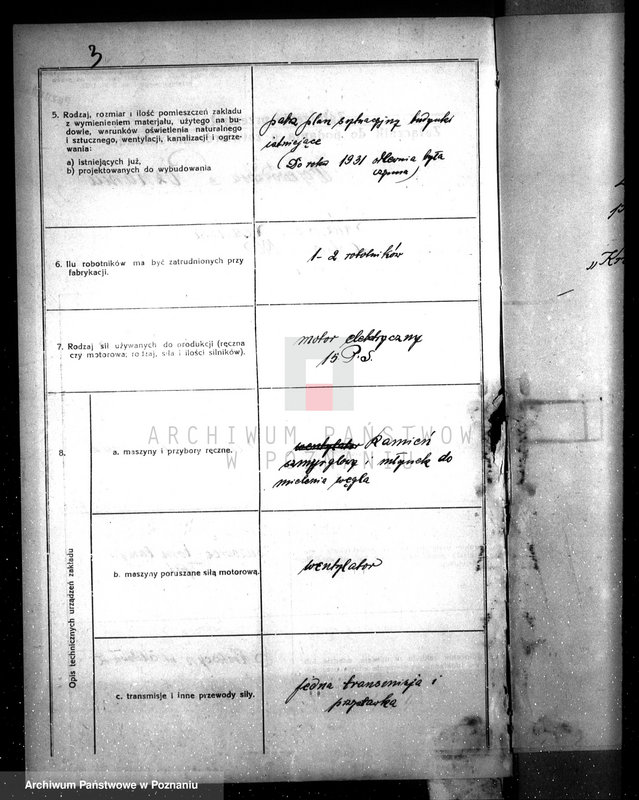 3
5. Rodzaj, rozmiar i ilość pomieszczeń zakładu
z wymienieniem materjału, użytego na bu-
dowie, warunków oświetlenia naturalnego
i sztucznego, wentylacji, kanalizacji i ogrze-
wania:
a) istniejących już,
b) projektowanych do wybudowania
patrz plan sytuacyjny budynki
istniejące
(Do roku 1931 odlewnia była
czynna)
6. Ilu robotników ma być zatrudnionych przy
fabrykacji.
1-2 robotników
7. Rodzaj sił używanych do produkcji (ręczna
czy motorowa, rodzaj, siła i ilości silników).
motor elektryczny
15 P.S.
8.
Opis technicznych urządzeń zakładu
a. maszyny i przybory ręczne.
wentylator Kamień
szmyrglowy i młynek do
mielenia węgla
b. maszyny poruszane siłą motorową.
wentylator
c. transmisje i inne przewody siły.
jedna transmisja i
przystawka
ARCHIWUM PAŃSTWOW
W POZNANIU
Archiwum Państwowe w Poznaniu